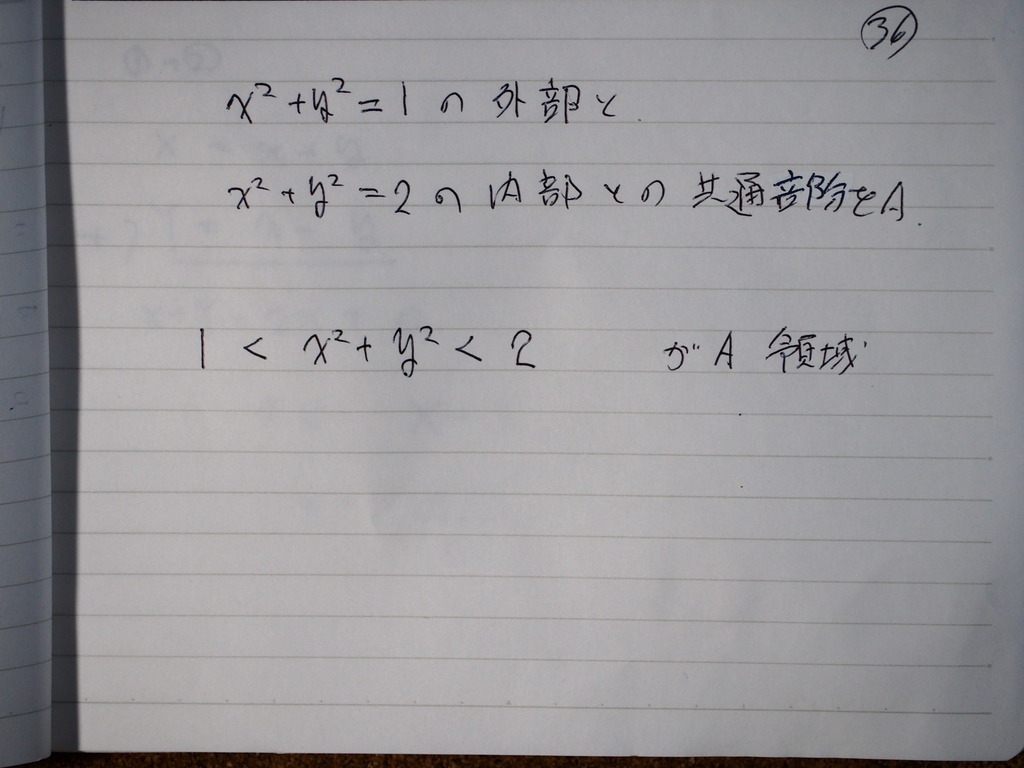 36
x² + y² = 1 の 外部と
x² + y² = 2 の 内部との 共通部分をA.
1 < x² + y² < 2 が A 領域